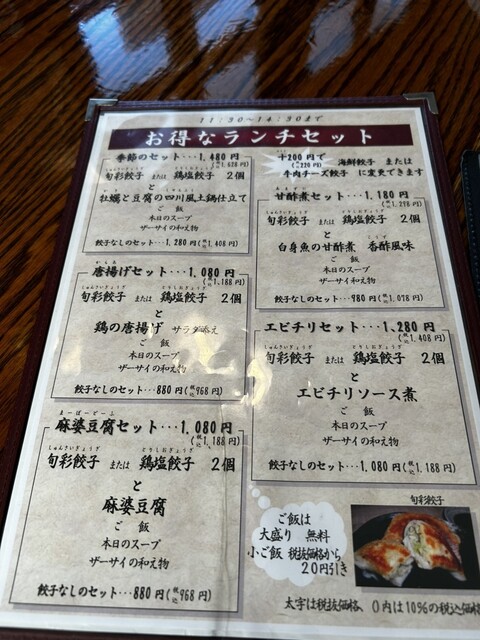 11:30~14:30まで
お得なランチセット
季節のセット･･･1,480円
(税込1,628円)
しゅんさいぎょうざ とりしおぎょうざ
旬彩餃子 または 鶏塩餃子 2個
と
牡蠣と豆腐の四川風土鍋仕立て
ご飯
本日のスープ
ザーサイの和え物
餃子なしのセット･･･1,280円(税込1,408円)
からあ
唐揚げセット･･･1,080円
(税込1,188円)
しゅんさいぎょうざ とりしおぎょうざ
旬彩餃子 または 鶏塩餃子 2個
と
鶏の唐揚げ サラダ添え
ご飯
本日のスープ
ザーサイの和え物
餃子なしのセット･･･880円(税込968円)
まーぼーどーふ
麻婆豆腐セット･･･1,080円
(税込1,188円)
しゅんさいぎょうざ とりしおぎょうざ
旬彩餃子 または 鶏塩餃子 2個
と
麻婆豆腐
ご飯
本日のスープ
ザーサイの和え物
餃子なしのセット･･･880円(税込968円)
+200円で
(税込220円)
海鮮餃子 または
牛肉チーズ餃子 に変更できます
あまずに
甘酢煮セット･･･1,180円
(税込1,298円)
しゅんさいぎょうざ とりしおぎょうざ
旬彩餃子 または 鶏塩餃子 2個
と
白身魚の甘酢煮 香酢風味
ご飯
本日のスープ
ザーサイ和え物
餃子なしのセット･･･980円(税込1,078円)
エビチリセット･･･1,280円
(税込1,408円)
しゅんさいぎょうざ とりしおぎょうざ
旬彩餃子 または 鶏塩餃子 2個
と
エビチリソース煮
ご飯
本日のスープ
ザーサイの和え物
餃子なしのセット･･･1,080円(税込1,188円)
ご飯は
大盛り 無料
小ご飯 税抜価格から
20円引き
旬彩餃子
太字は税抜価格、()内は10%の税込価格